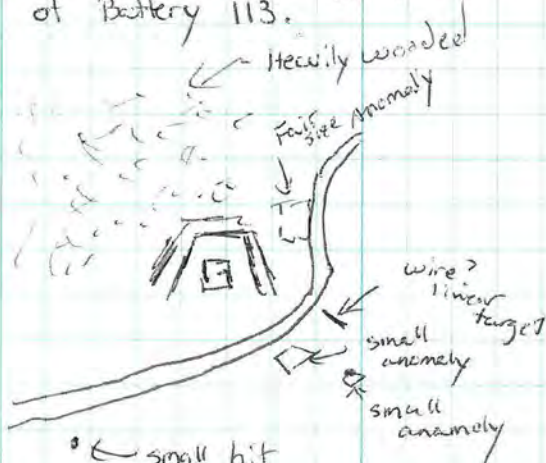 of Battery 113.
Heavily wooded
Fair
size Anomaly
wire?
linear
target
small
anomaly
small
anomaly
small hit